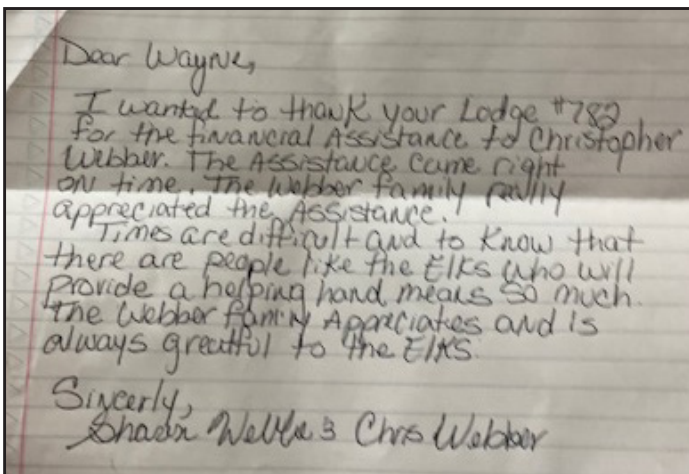 Dear Wayne,
I wanted to thank your Lodge #782
for the financial Assistance to Christopher
Webber. The Assistance came right
on time. The Webber family really
appreciated the Assistance.
Times are difficult and to know that
there are people like the Elks who will
provide a helping hand means so much.
The Webber family Appreciates and is
always greatful to the Elks.
Sincerly,
Chris Webber